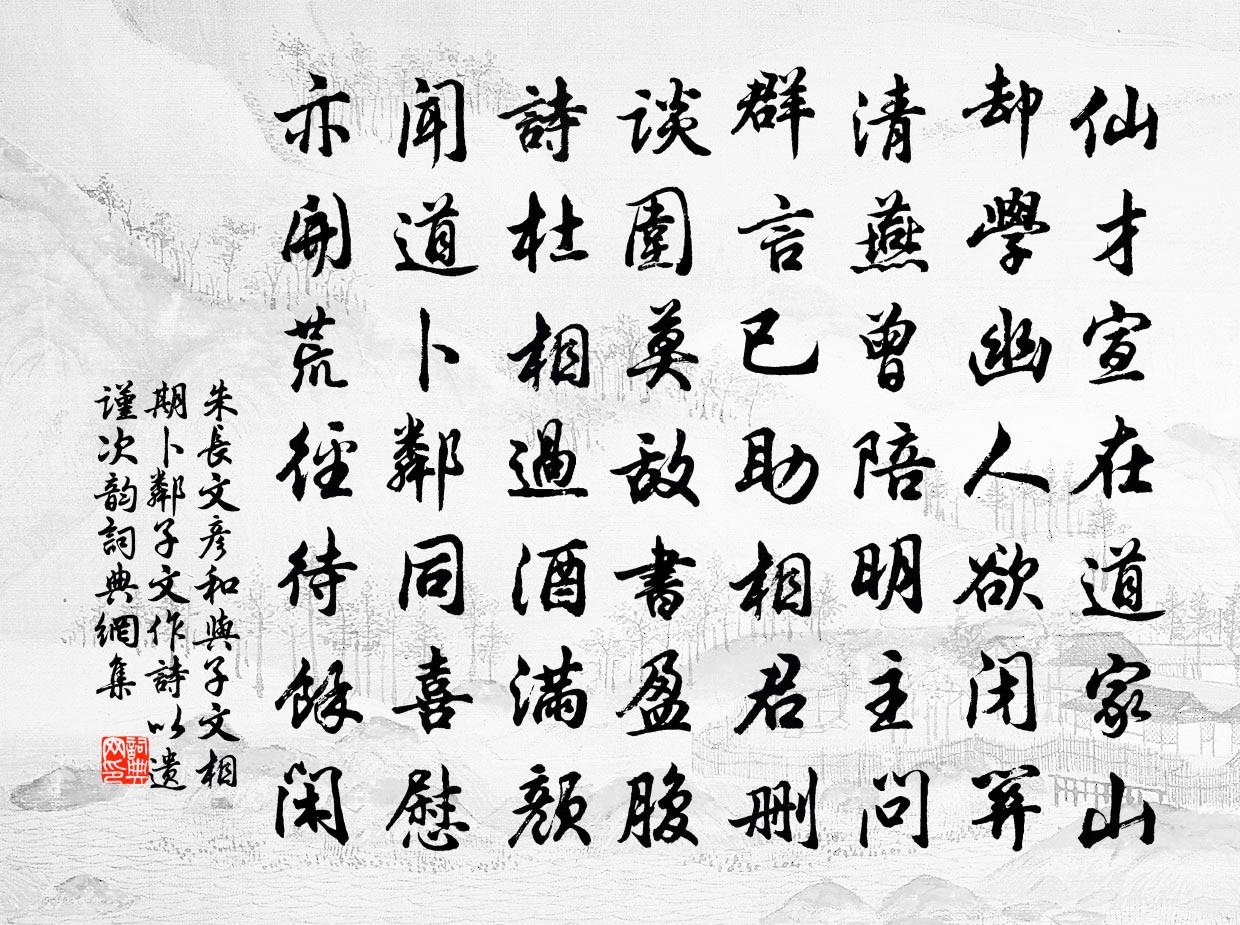 仙才宣在道家山
却學幽人欲闭關
清燕曾陪明主问
群言已助相君删
谈圍莫敌書盈腹
詩杜相過酒滿顔
闻道卜鄰同喜慰
亦開荒徑待餘闲
朱長文彦和與子文相
期卜鄰子文作詩以遗
谨次韵詞典網集
詞典网印